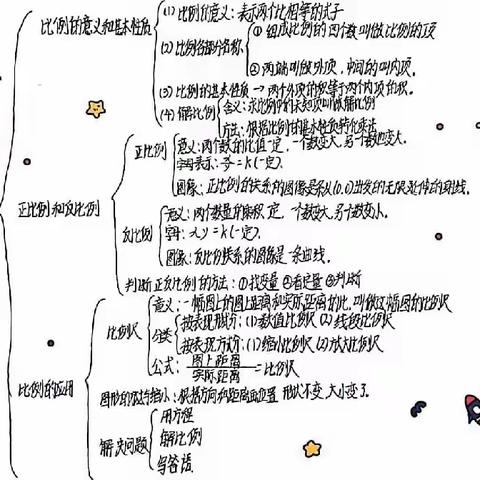 比例的意义和基本性质
(1) 比例的意义：表示两个比相等的式子
(2) 比例各部分名称
① 组成比例的四个数叫做比例的项
② 两端叫做外项，中间的叫内项。
(3) 比例的基本性质 → 两个外项的积等于两个内项的积。
(4) 解比例
含义：求比例中的未知项叫做解比例
方法：根据比例的基本性质转化乘法
正比例和反比例
正比例
意义：两个数的比值一定，一个数变大，另一个数也变大。
字母表示： = k (一定).
图像：正比例的关系的图像是从(0,0)出发的无限延伸的射线。
反比例
意义：两个数量的乘积一定，一个数变大，另一个数变小。
字母：x y = k (一定).
图象：反比例关系的图像是一条曲线。
判断正反比例的方法：①找变量 ②看定量 ③判断
比例的应用
比例尺
意义：一幅图上的图上距离和实际距离的比，叫做这幅图的比例尺
分类
按表现形式分：(1) 数值比例尺 (2) 线段比例尺
按表现方式分：(1) 缩小比例尺 (2) 放大比例尺
公式：图上距离
实际距离 = 比例尺
图形的放大与缩小：根据方向和距离画位置 形状不变，大小变了。
解决问题
用方程
解比例
写答语.